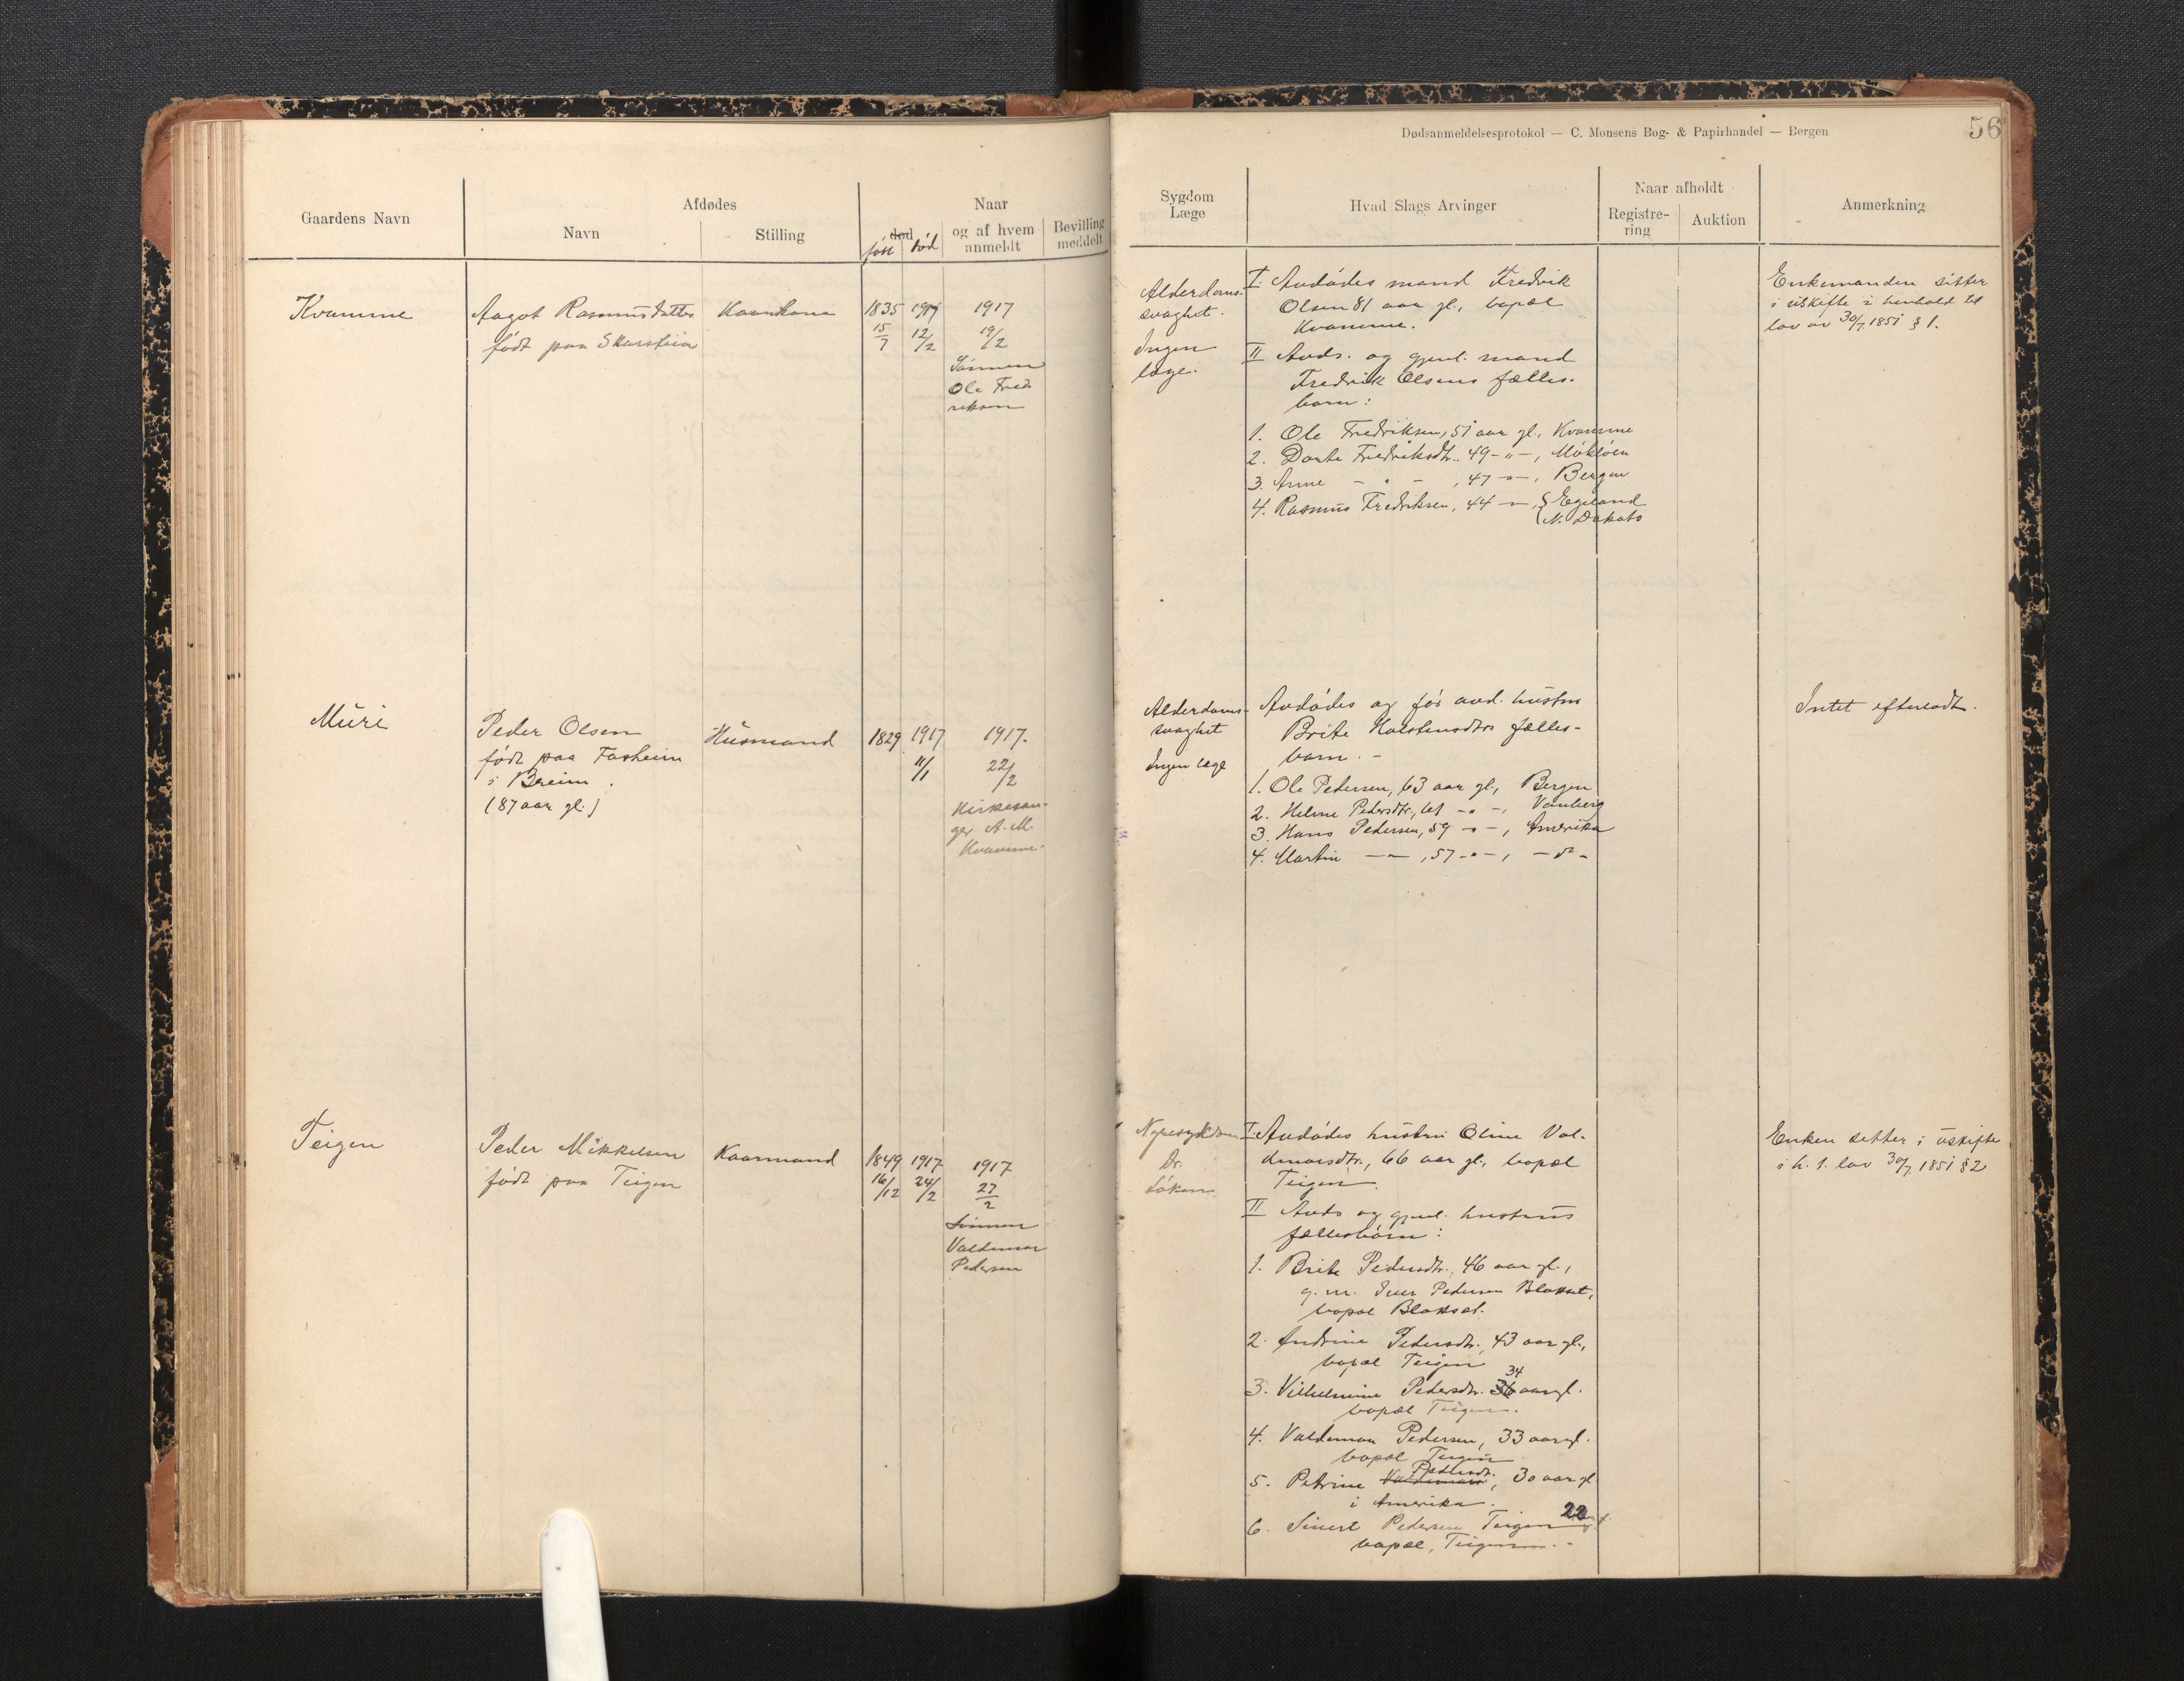 Gaardens Navn
Afdødes
Navn
Stilling
Naar
død
født død
og af hvem
anmeldt
Bevilling
meddelt
Kvamme
Aagot Rasmusdatter
født paa Skarstein
Kaarkona
1835
15/7
1917
12/2
1917
19/2
Sønnen
Ole Fred
riksen
Muri
Peder Olsen
født paa Fosheim
i Breim.
(87 aar gl.)
Husmand
1829
1917
11/1
1917.
22/2
Kirkesan-
ger A. M.
Kvamme.
Teigen
Peder Mikkelsen
født paa Teigen
Kaarmand
1849
16/12
1917
24/2
1917
27/2
Sønnen
Valdemar
Pedersen
Dødsanmeldelsesprotokol — C. Monsens Bog- & Papirhandel — Bergen
56
Sygdom
Læge
Hvad Slags Arvinger
Naar afholdt
Registre-
ring
Auktion
Anmerkning
Alderdoms-
svaghet.
Ingen
læge.
I. Avdødes mand Fredrik
Olsen 81 aar gl., bopæl
Kvamme.
II Avds. og gjenl. mand
Fredrik Olsens fælles-
barn:
1. Ole Fredriksen, 51 aar gl., Kvamme
2. Dorte Fredriksdtr. 49 - " -, Mökløen
3. Anne - " - , 47 - " -, Bergen
4. Rasmus Fredriksen, 44 - " -, { Egeland
N. Dakato
Enkemanden sitter
i uskifte i henhold til
lov av 30/7 1851 § 1.
Alderdoms-
svaghet
Ingen læge
Avdødes og før avd. hustru
Brite Halstensdtrs fælles-
barn. -
1. Ole Pedersen, 63 aar gl., Bergen
2. Helene Pedersdtr., 61 - " -,
3. Hans Pedersen, 59 - " -, Amerika
4. Martin - " - , 57 - " -, - do -
Intet efterladt.
Nyresykdom
Dr.
Løken
I. Avdødes hustru Oline Val-
demarsdtr., 66 aar gl., bopæl
Teigen.
II Avds og gjenl. hustrus
fællesbørn:
1. Brite Pedersdtr., 46 aar gl.,
g. m. Iver Pedersen Blakset,
bopæl Blakset.
2. Andrine Pedersdtr., 43 aar gl.,
bopæl Teigen
34
3. Vilhelmine Pedersdtr. 36 aar gl.
bopæl Teigen.
4. Valdemar Pedersen, 33 aar gl.
bopæl Teigen
Pedersdt.
5. Petrine Valdemars, 30 aar gl
i Amerika.
22
6. Sivert Pedersen Teigen
bopæl, Teigen. -
Enken sitter i uskifte
i h. t. lov 30/7 1851 § 2